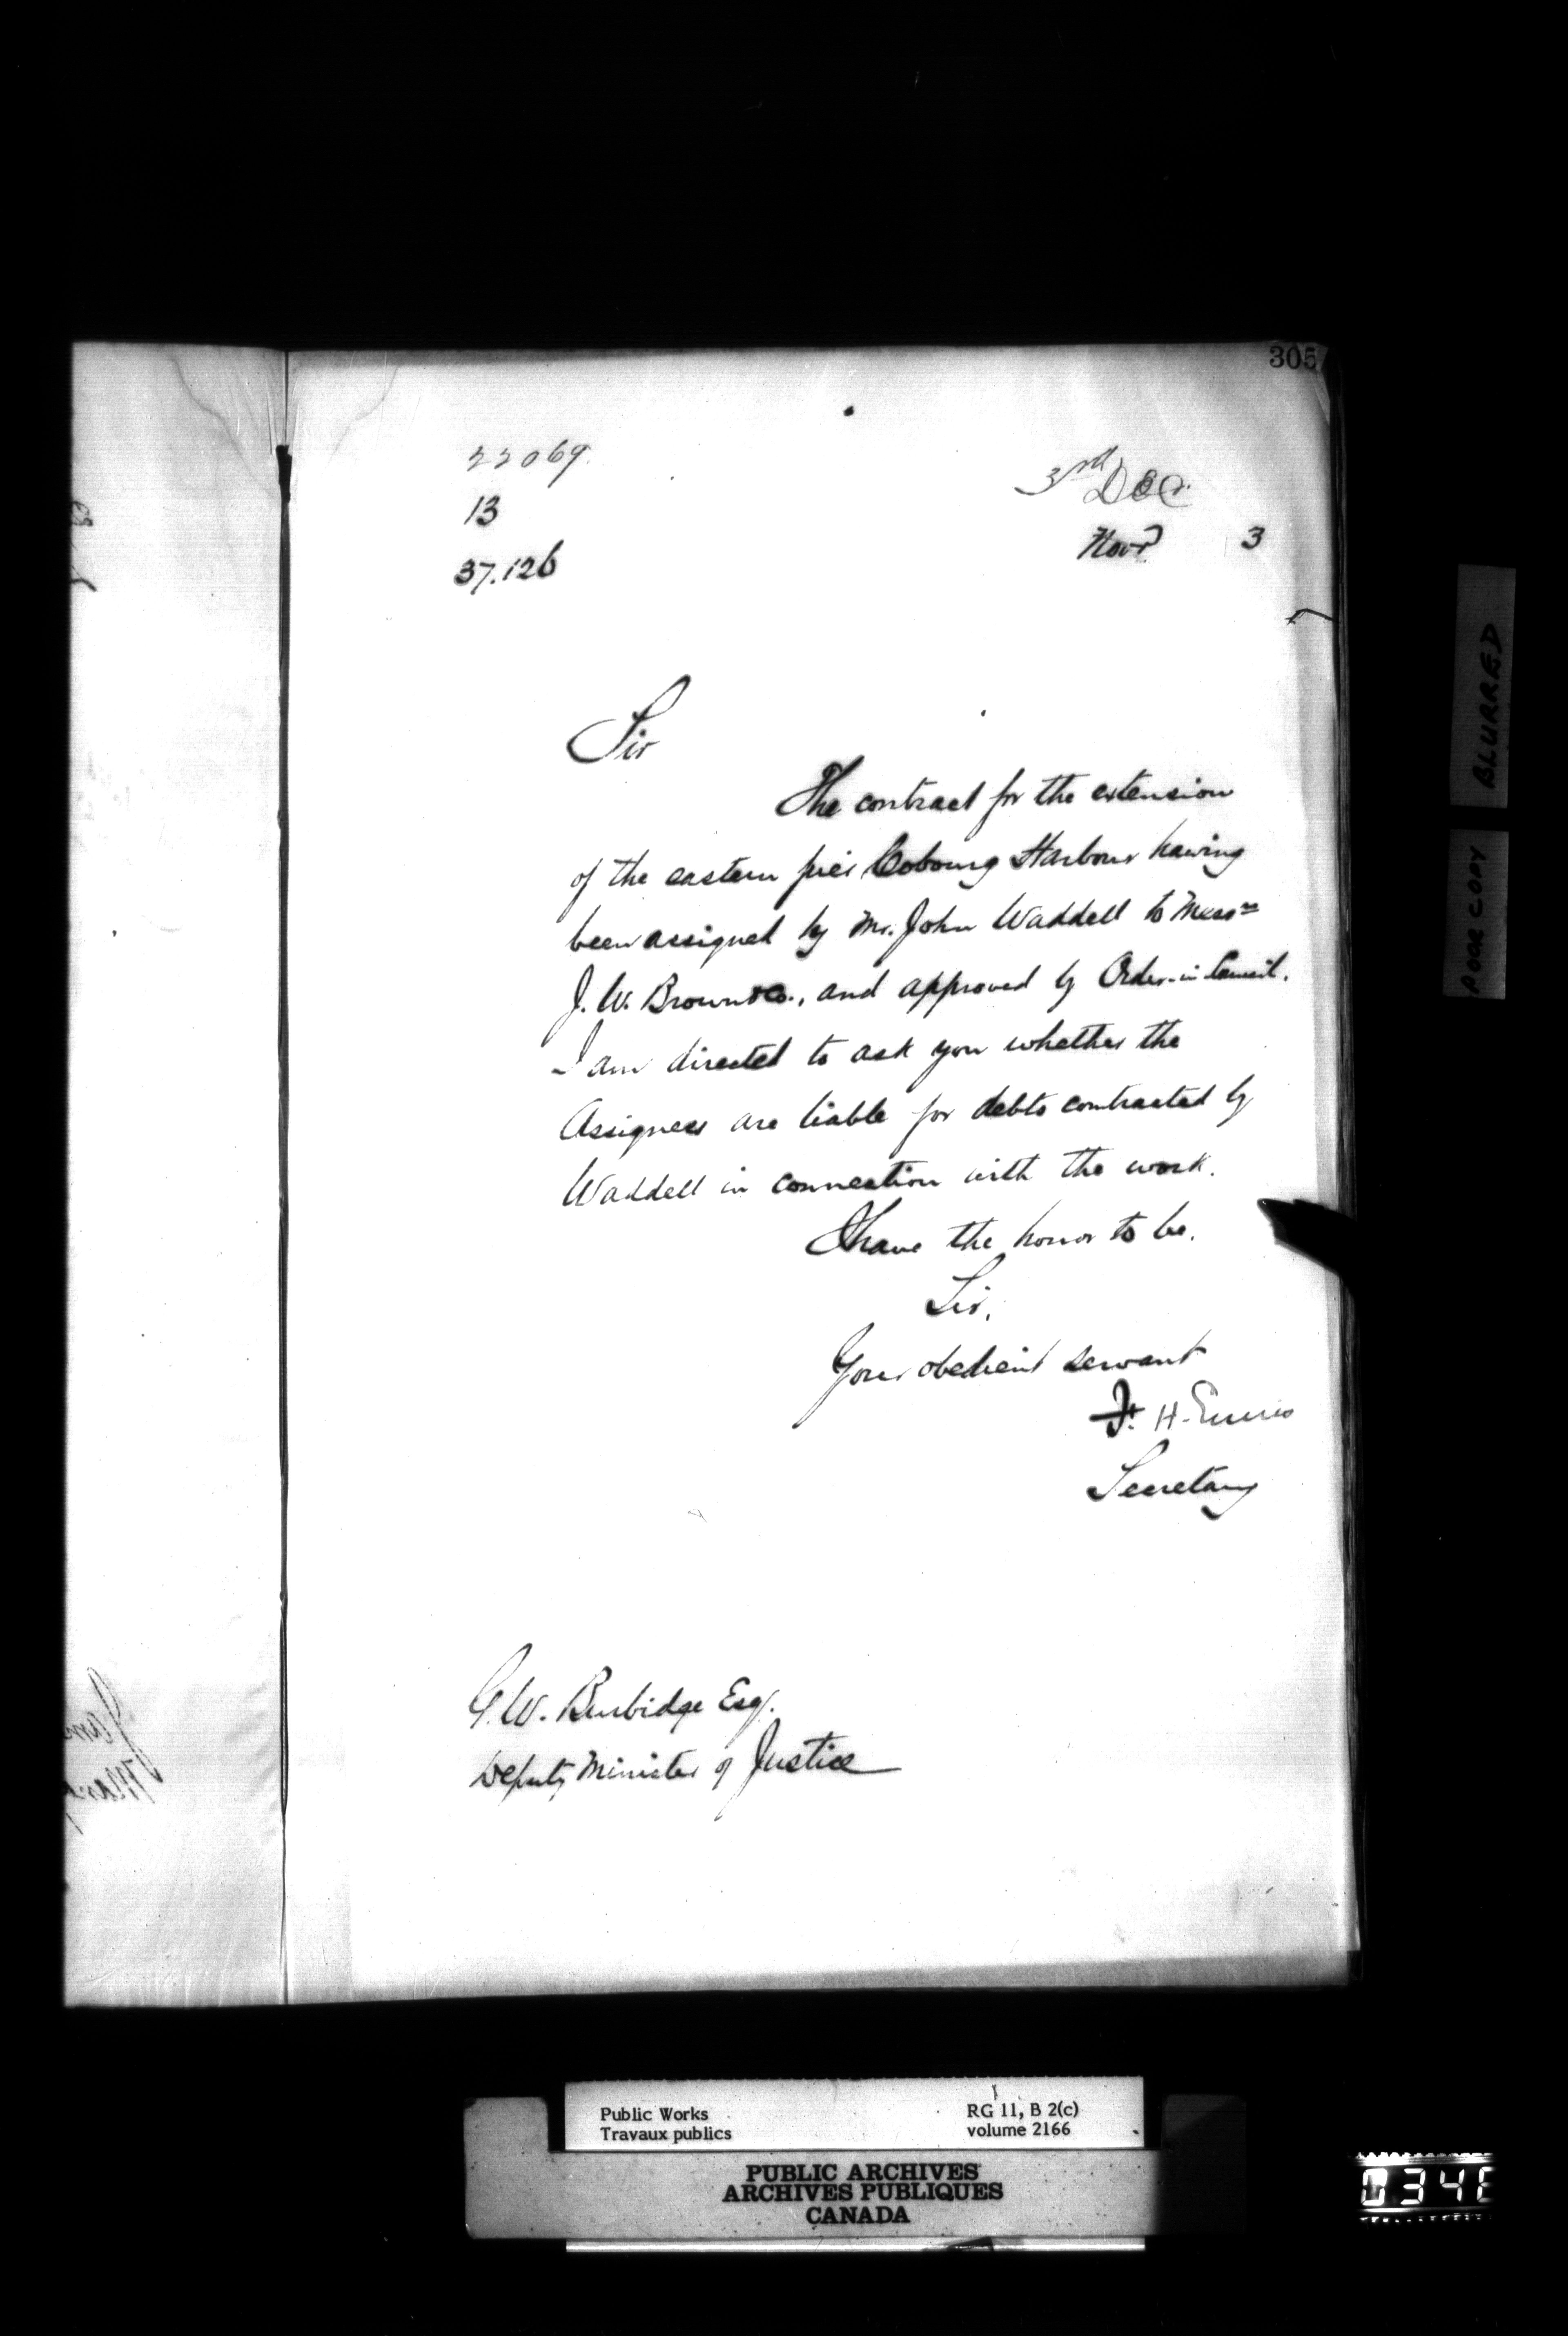 305
22069.
13
37.126
3rd Dec.
Novr 3
Sir
The contract for the extension
of the eastern pier Cobourg Harbour having
been assigned by Mr. John Waddell to Messrs
J. W. Brown & Co., and approved by Order-in-Council.
I am directed to ask you whether the
Assignees are liable for debts contracted by
Waddell in connection with the work.
I have the honor to be.
Sir,
Your obedient servant
F. H. Ennis
Secretary
G. W. Burbidge Esq.
Deputy Minister of Justice
BLURRED
POOR COPY
Public Works
Travaux publics
RG 11, B 2(c)
volume 2166
PUBLIC ARCHIVES
ARCHIVES PUBLIQUES
CANADA